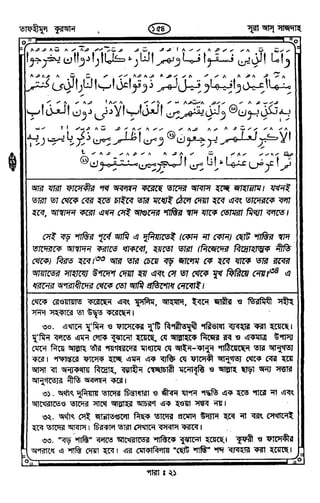 তাফহীমুল কুরআন
১৫৪
সূরা আস্ সাজদাহ
وَأَمَّا الَّذِينَ فَسَقُوا فَمَأْوَاهُمُ النَّارُ كُلَّمَا أَرَادُوا أَنْ يَخْرُجُوا
مِنْهَا أُعِيدُوا فِيهَا وَقِيلَ لَهُمْ ذُوقُوا عَذَابَ النَّارِ الَّذِي كُنْتُمْ
بِهِ تُكَذِّبُونَ ۝ وَلَنُذِيقَنَّهُمْ مِنَ الْعَذَابِ الْأَدْنَى دُونَ الْعَذَابِ
الْأَكْبَرِ لَعَلَّهُمْ يَرْجِعُونَ ۝ وَمَنْ أَظْلَمُ مِمَّنْ ذُكِّرَ بِآيَاتِ رَبِّهِ
ثُمَّ أَعْرَضَ عَنْهَا إِنَّا مِنَ الْمُجْرِمِينَ مُنْتَقِمُونَ ۝
আর যারা ফাসেকীর পথ অবলম্বন করেছে তাদের আবাস হচ্ছে জাহান্নাম। যখনই
তারা তা থেকে বের হতে চাইবে তার মধ্যেই ঠেলে দেয়া হবে এবং তাদেরকে বলা
হবে, আস্বাদন করো এখন সেই আগুনের শাস্তির স্বাদ যাকে তোমরা মিথ্যা বলতে।
সেই বড় শাস্তির পূর্বে আমি এ দুনিয়াতেই (কোন না কোন) ছোট শাস্তির স্বাদ
তাদেরকে আস্বাদন করাতে থাকবো, হয়তো তারা (নিজেদের বিদ্রোহাত্মক নীতি
থেকে) বিরত হবে।৩৩ আর তার চেয়ে বড় জালেম কে হবে যাকে তার রবের
আয়াতের সাহায্যে উপদেশ দেয়া হয় এবং সে তা থেকে মুখ ফিরিয়ে নেয়?৩৪ এ
ধরনের অপরাধীদের থেকে তো আমি প্রতিশোধ নেবোই।
থেকে রেওয়ায়াত করেছেন এবং মুসলিম, আহমাদ, ইবনে জারীর ও তিরমিযী সহীহ
সনদ সহকারে তা উদ্ধৃত করেছেন।
৩০. এখানে মু'মিন ও ফাসেকের দু'টি বিপরীতমুখী পরিভাষা ব্যবহার করা হয়েছে।
মু'মিন বলতে এমন লোক বুঝানো হয়েছে, যে আল্লাহকে নিজের রব ও একমাত্র উপাস্য
মেনে নিয়ে আল্লাহ তাঁর পয়গম্বরদের মাধ্যমে যে আইন-কানুন পাঠিয়েছেন তার আনুগত্য
করে। পক্ষান্তরে ফাসেক হচ্ছে এমন এক ব্যক্তি যে ফাসেকী আনুগত্য থেকে বের হয়ে
আসা বা অন্যকথায় বিদ্রোহ, বল্গাহীন স্বেচ্ছাচারী মনোবৃত্তি ও আল্লাহ ছাড়া অন্য সত্তার
আনুগত্যের নীতি অবলম্বন করে।
৩১. অর্থাৎ দুনিয়ায় তাদের চিন্তাধারা ও জীবন যাপন পদ্ধতি এক হতে পারে না এবং
আখেরাতেও তাদের সাথে আল্লাহর আচরণ এক হওয়া সম্ভব নয়।
৩২. অর্থাৎ সেই জান্নাতগুলো নিছক তাদের প্রমোদ উদ্যান হবে না বরং সেখানেই
হবে তাদের আবাস। চিরকাল তারা সেখানে বসবাস করবে।
৩৩. "বড় শাস্তি" বলতে আখেরাতের শাস্তিকে বুঝানো হয়েছে। কুফরী ও ফাসেকীর
অপরাধে এ শাস্তি দেয়া হবে। এর মোকাবিলায় "ছোট শাস্তি" শব্দ ব্যবহার করা হয়েছে।
পারা : ২১